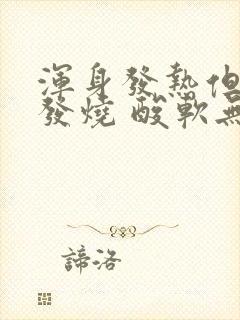 渾身發熱但
發燒 酸軟無
諦洛